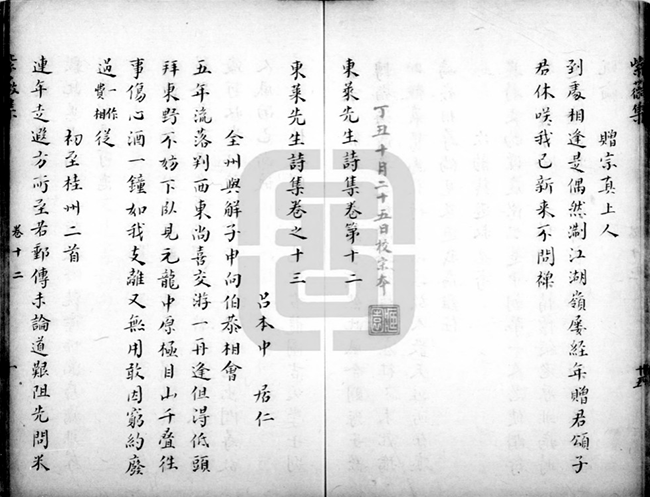 紫薇集
贈宗真上人
到處相逢是偶然淛江湖嶺屢經年贈君頌子
君休嘆我已新来不問禪
東萊先生詩集卷第十二
丁丑十月二十五日校宗本
東萊先生詩集卷之十三
吕本中 居仁
全州與解子中向伯恭相會
五年流落判西東尚喜交游一再逢但得低頭
拜東野不妨下臥見元龍中原極目山千叠往
事傷心酒一鐘如我支離又無用敢因窮約廢
過一作費相從
初至桂州二首
連年走遐方所至若郵傳未論道艱阻先問米
卷十二